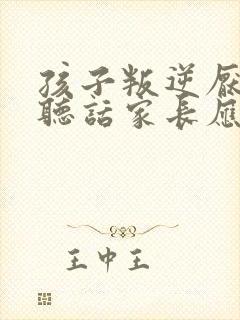 孩子叛逆厭
聽話家長應
王中王